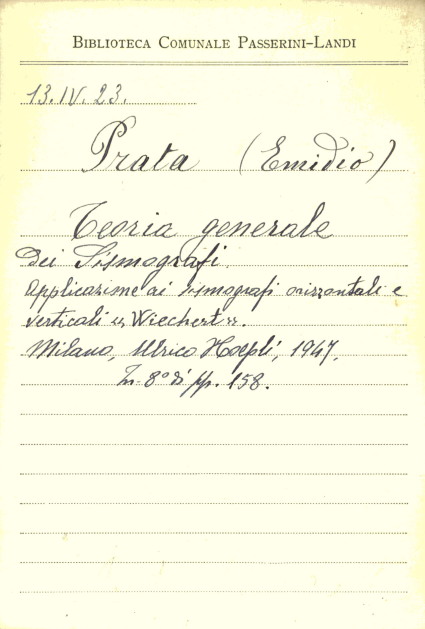 BIBLIOTECA COMUNALE PASSERINI-LANDI
13.IV.23.
Prata (Emidio)
Teoria generale
dei Sismografi.
Applicazione ai sismografi orizzontali e
verticali « Wiechert ».
Milano, Ulrico Hoepli, 1947,
In 8° di pp. 158.